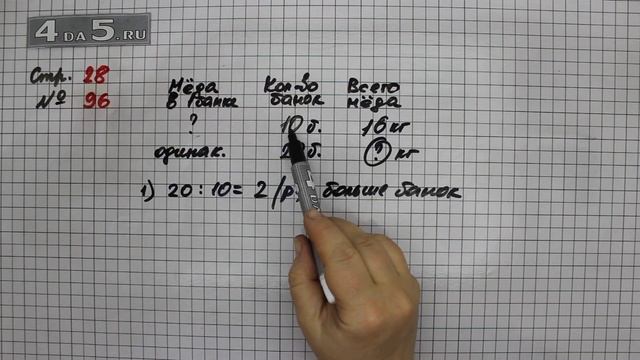 4 DA 5.RU
Стр. 28
№ 96
Мёда в 1 банке Кол-во банок Всего мёда
? 10 б. 16 кг
одинак. б. ? кг
1) 20 : 10 = 2 /р больше банок